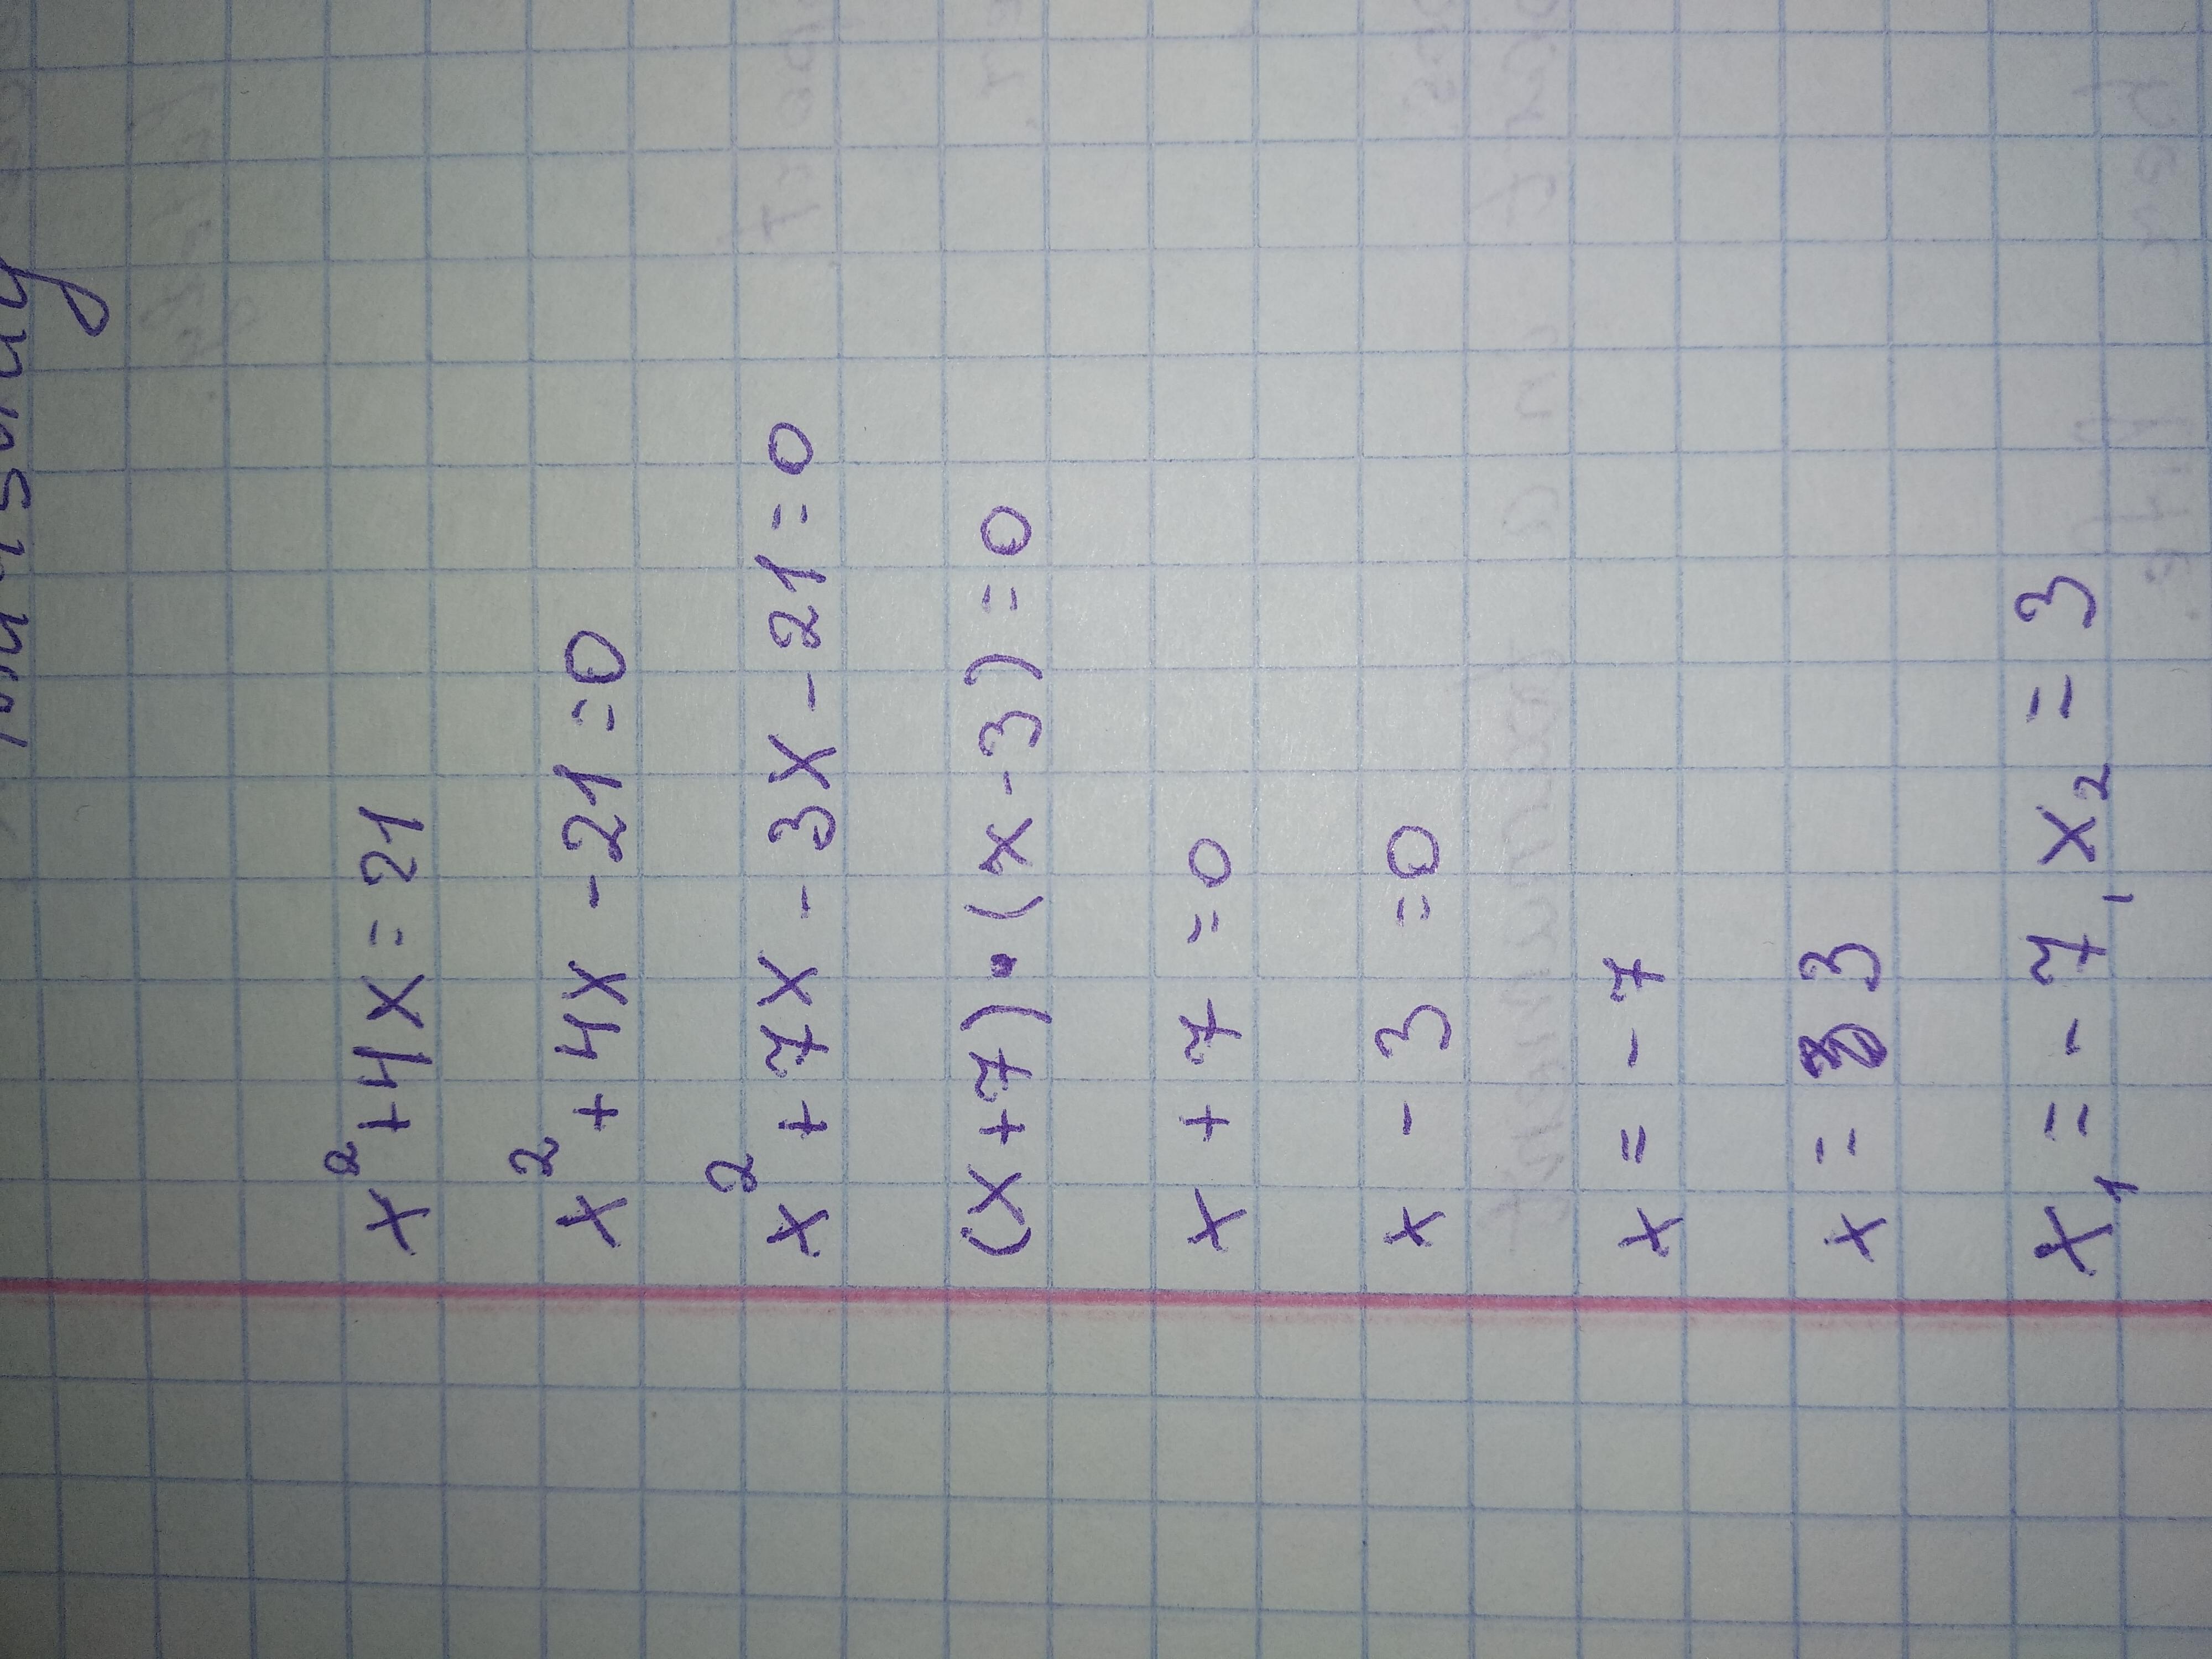 x² + 4x = 21
x² + 4x - 21 = 0
x² + 7x - 3x - 21 = 0
(x + 7) • (x - 3) = 0
x + 7 = 0
x - 3 = 0
x = - 7
x = 3
x₁ = - 7, x₂ = 3